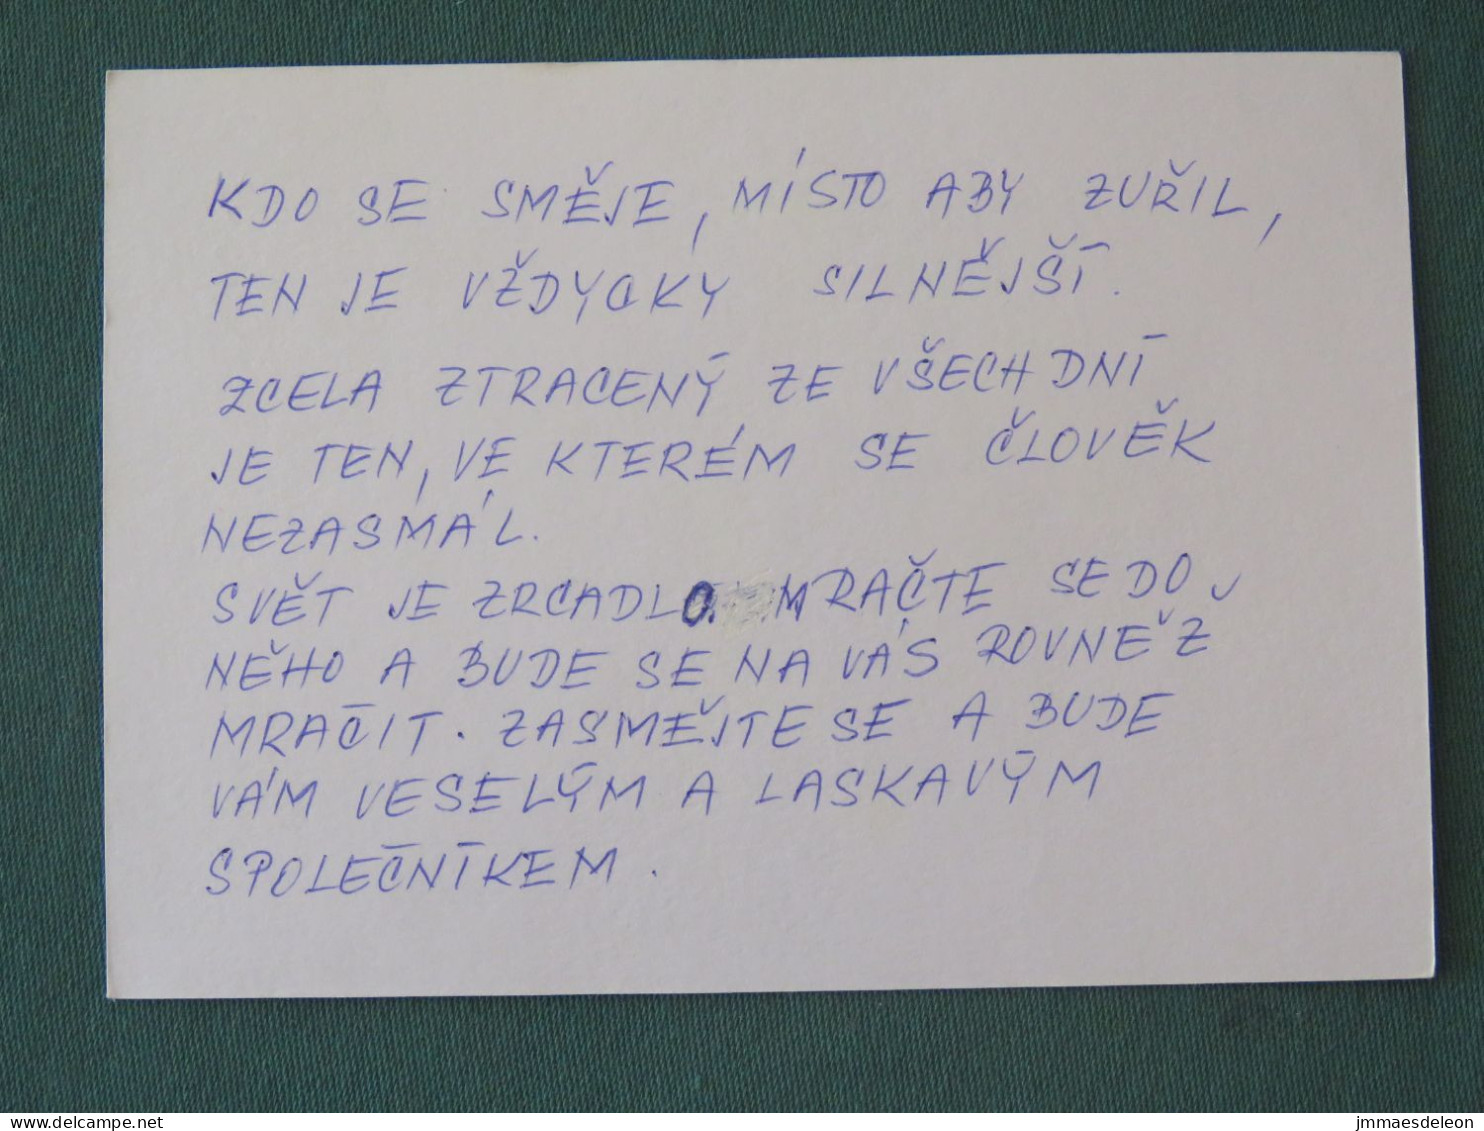 KDO SE SMĚJE, MÍSTO ABY ZUŘIL,
TEN JE VŽDYCKY SILNĚJŠÍ.
ZCELA ZTRACENÝ ZE VŠECH DNÍ
JE TEN, VE KTERÉM SE ČLOVĚK
NEZASMÁL.
SVĚT JE ZRCADLO. MRAČTE SE DO
NĚHO A BUDE SE NA VÁS ROVNĚŽ
MRAČIT. ZASMĚJTE SE A BUDE
VÁM VESELÝM A LASKAVÝM
SPOLEČNÍKEM.
www.delcampe.net
jmmaesdeleon